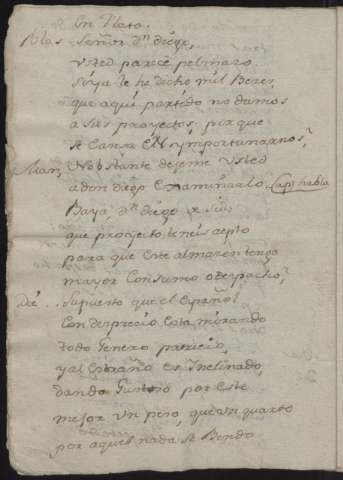 en Plato.
Blas Señor Dn. diego,
Usted parece pelmazo.
Si ya le he dicho mil Beces,
que aqui partido no damos
a sus proyectos, pirque
se Cansa en ynportunarnos?
Juan, No bstante dejeme Usted
a den diego Examinarlo. Cap. habla
Baya, Dn. diego
que proyecto teneis aepto
para que Este almazen tenga
mayor Consumo o despacho?
Die... Supuesto que el Español
Con desprecio Esta mirando
todo Genero patricio,
y al Estraño es Inclinado,
dando Gustoso por Este
mejor Un peso, que Un quarto
por aquel nada se Bende